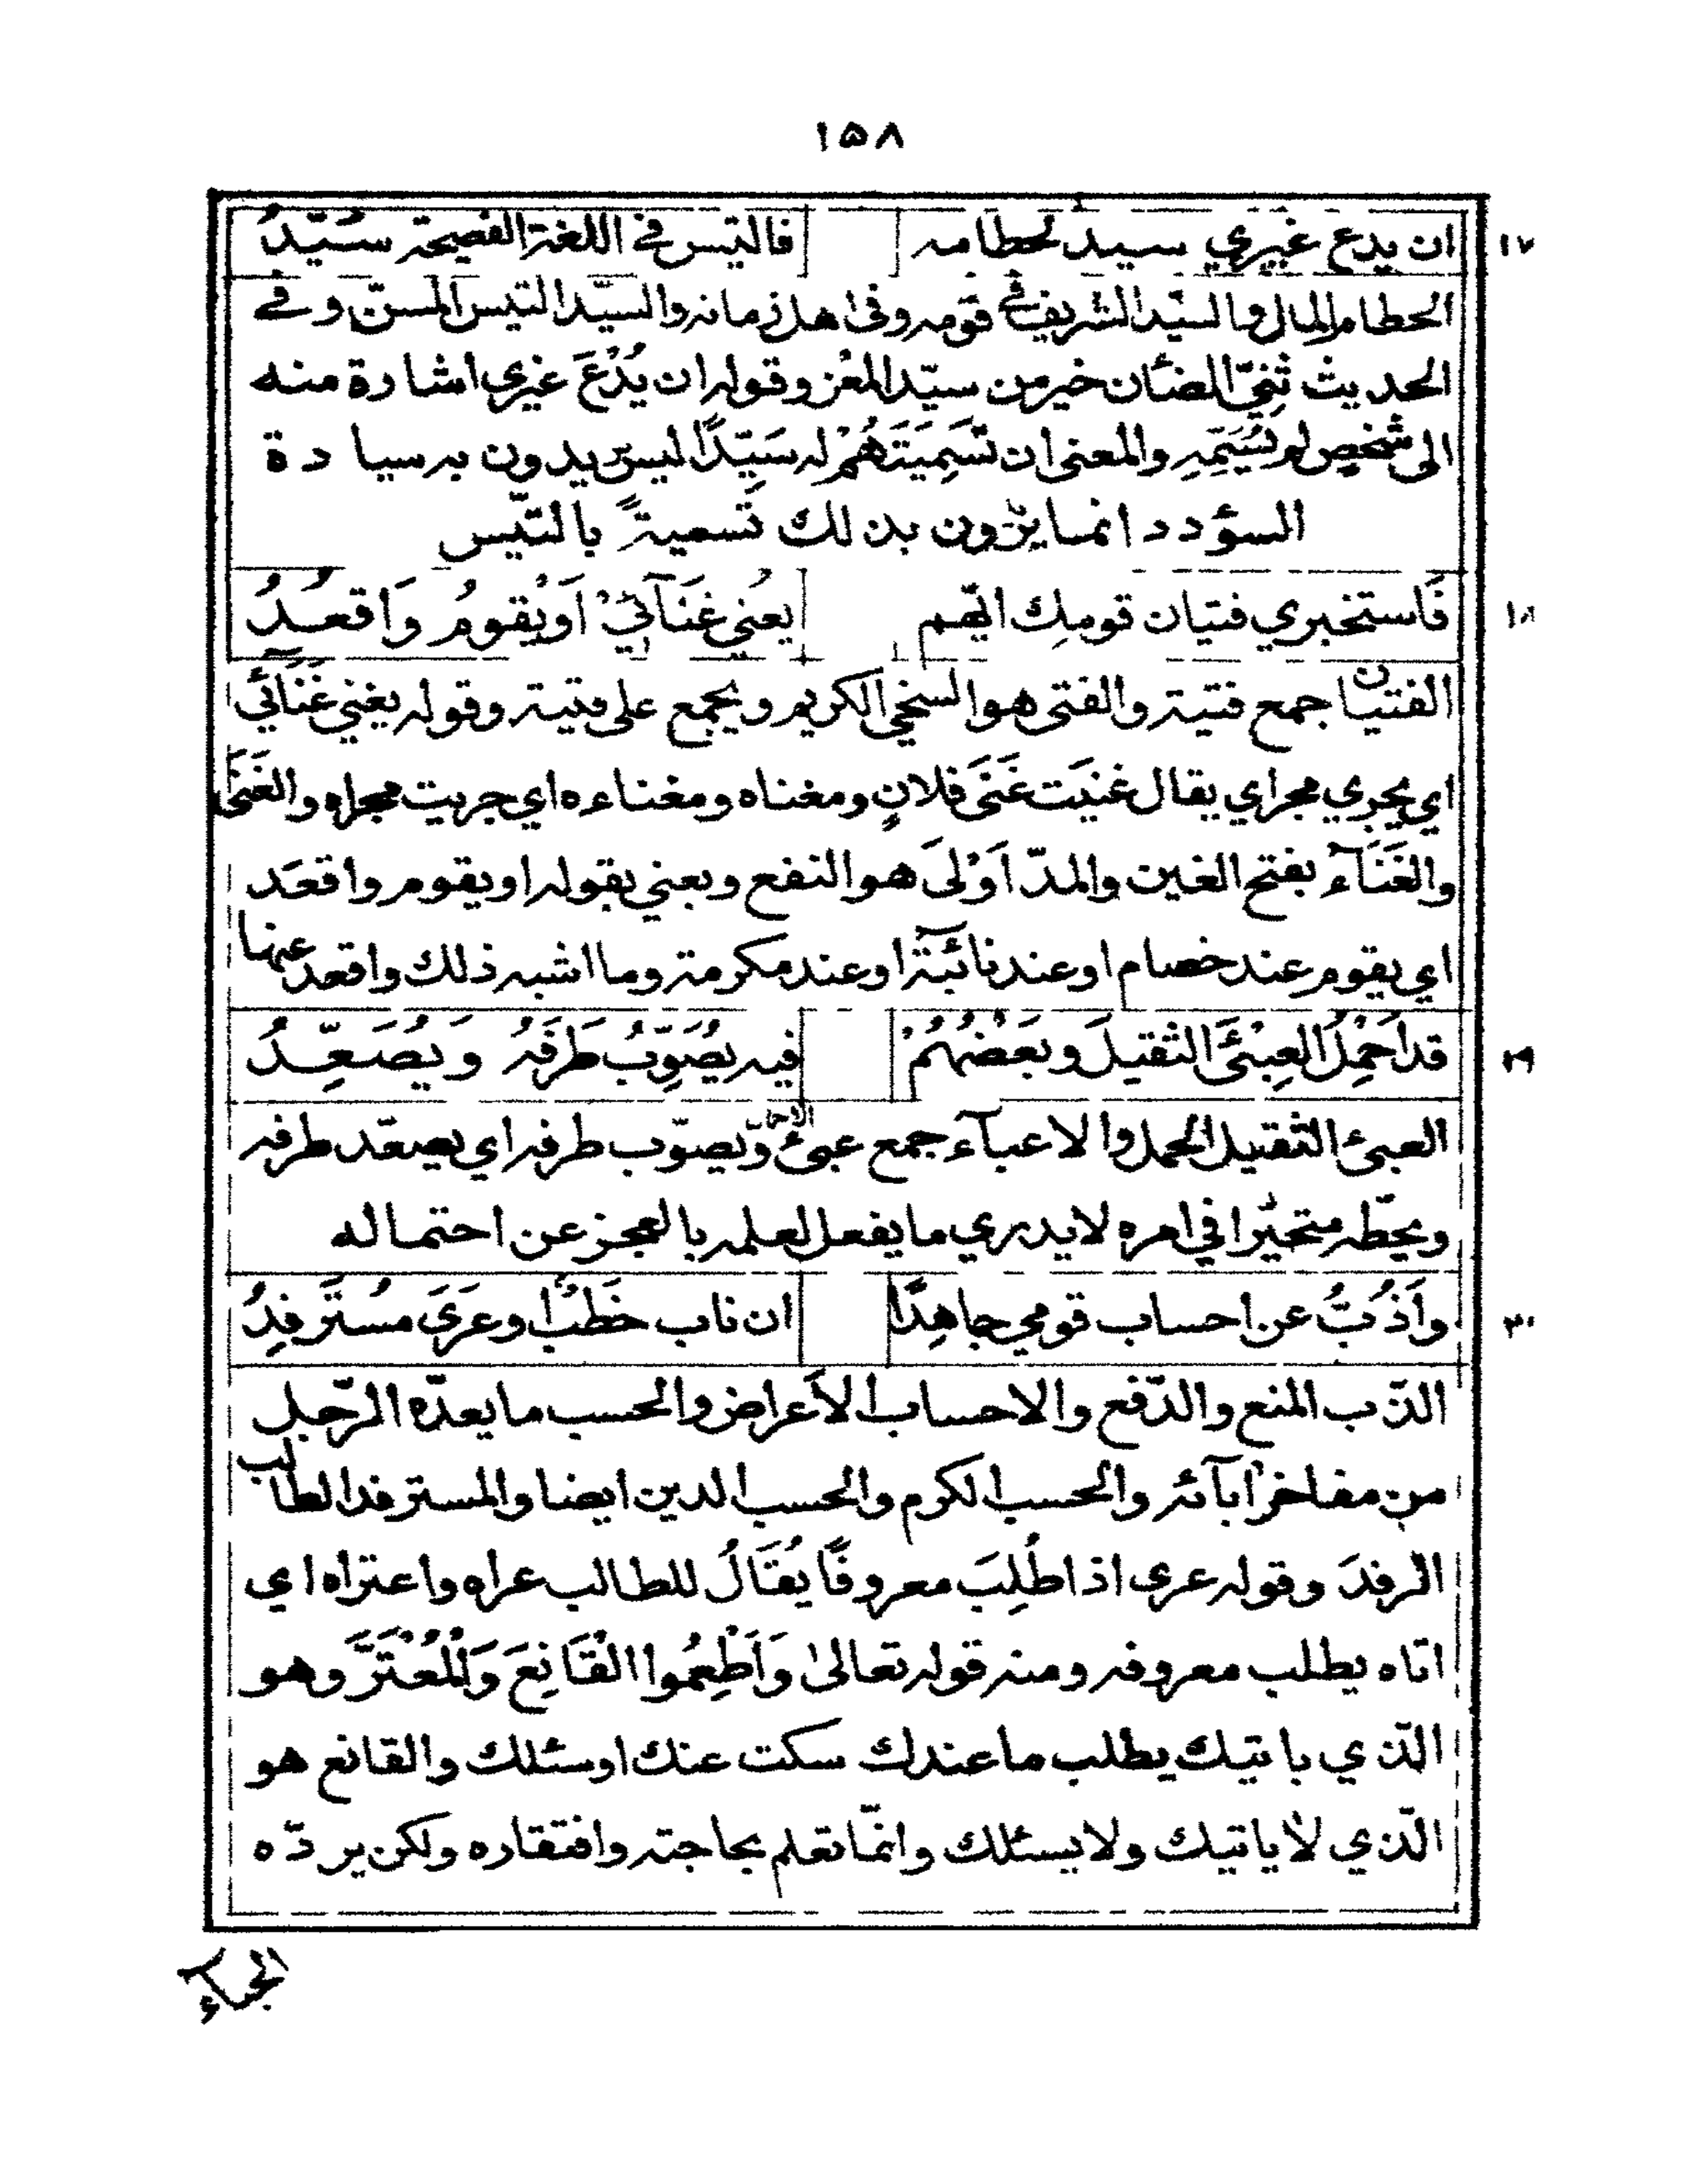 ١٥٨
١٧ ان يدع غيري سيد لحطامه فالتيس في اللغة الفصيحة سَيّدُ
الحطام المال والسيّد الشريف في قومه وفى اهل زمانه والسيّد التيس المسنّ وفي
الحديث ثَنِيّ الضئان خير من سيّد المعز وقوله ان يُدْعَ غيري اشارة منه
الى شخص لم يُسَمِّهِ والمعنى ان تَسمِيَتَهُمْ له سَيّدًا ليس يريدون به سيادة
السؤدد انما يرون بذلك تَسميةً بالتّيس
١٨ فَاستخبري فتيان قومك ايّهم يغني غَنَآئِيْ اَوْيقومُ وَاقعُدُ
الفتيان جمع فتية والفتى هو السخي الكريم ويجمع على فتية وقوله يغني غَنَآئي
اي يجري مجراي يقال غنيَت غَنَى فلانٍ ومغناه ومغناءه اي جريت مجراه والغَنَى
والغَنَآءُ بفتح الغين والمدّ اَوْلىَ هو النفع ويعني بقوله او يقوم واقعَد
اي يقوم عند خصام او عند نائبة او عند مكرمة وما اشبه ذلك واقعد عنها
١٩ قد اَحْمِلُ العِبْئَ الثقيلَ وبَعْضُهُمْ فيه يُصَوِّبُ طَرفَهُ وَيُصَعِّدُ
العبئ الثقيل الحمل والاعبآء جمع عبئ ويصوّب طرفه اي يصعّد طرفه
ويحطّه متحيّرا في امره لا يدري ما يفعل لعلمه بالعجز عن احتماله
٣٠ واَذُبُّ عن احساب قومي جاهِدًا ان ناب خَطْبٌ او عَرَىَ مُستَرفِدُ
الذّب المنع والدّفع والاحساب الاَعراض والحسب ما يعدّه الرّجل
من مفاخر آبآئه والحسب الكرم والحسب الدين ايضا والمسترفد الطالب
الرفدَ وقوله عرى اذا طُلِبَ معروفًا يُقَالُ للطالب عراه واعتراه اي
اتاه يطلب معروفه ومنه قوله تعالىٰ وَاَطْعِمُوا الْقَانِعَ وَالْمُعْتَرَّ وهو
الّذي ياتيك يطلب ما عندك سكت عنك او سئلك والقانع هو
الّذي لا ياتيك ولا يسئلك وانّما تعلم بحاجته وافتقاره ولكن يردّه
الحياء